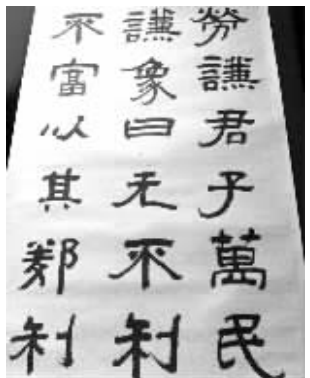 勞謙君子萬民
謙象曰无不利
不富以其鄰利